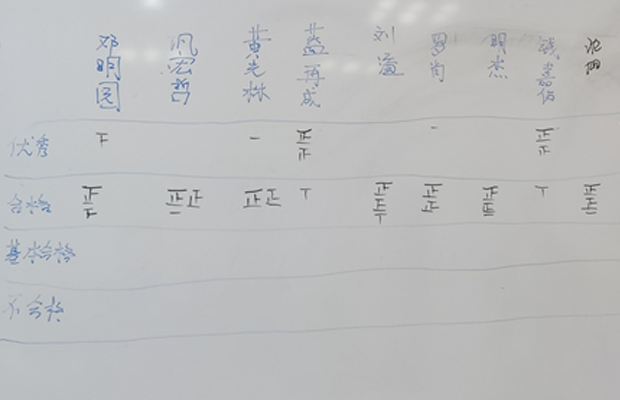 邓明园 凡宏哲 黄光林 盖再成 刘 罗肖 明杰 钱嘉佰 沈阳
优秀 下 一 正正 一 正正
合格 正下 正正一 正正 丅 正正丅 正正 正正 丅 正正
基本合格
不合格